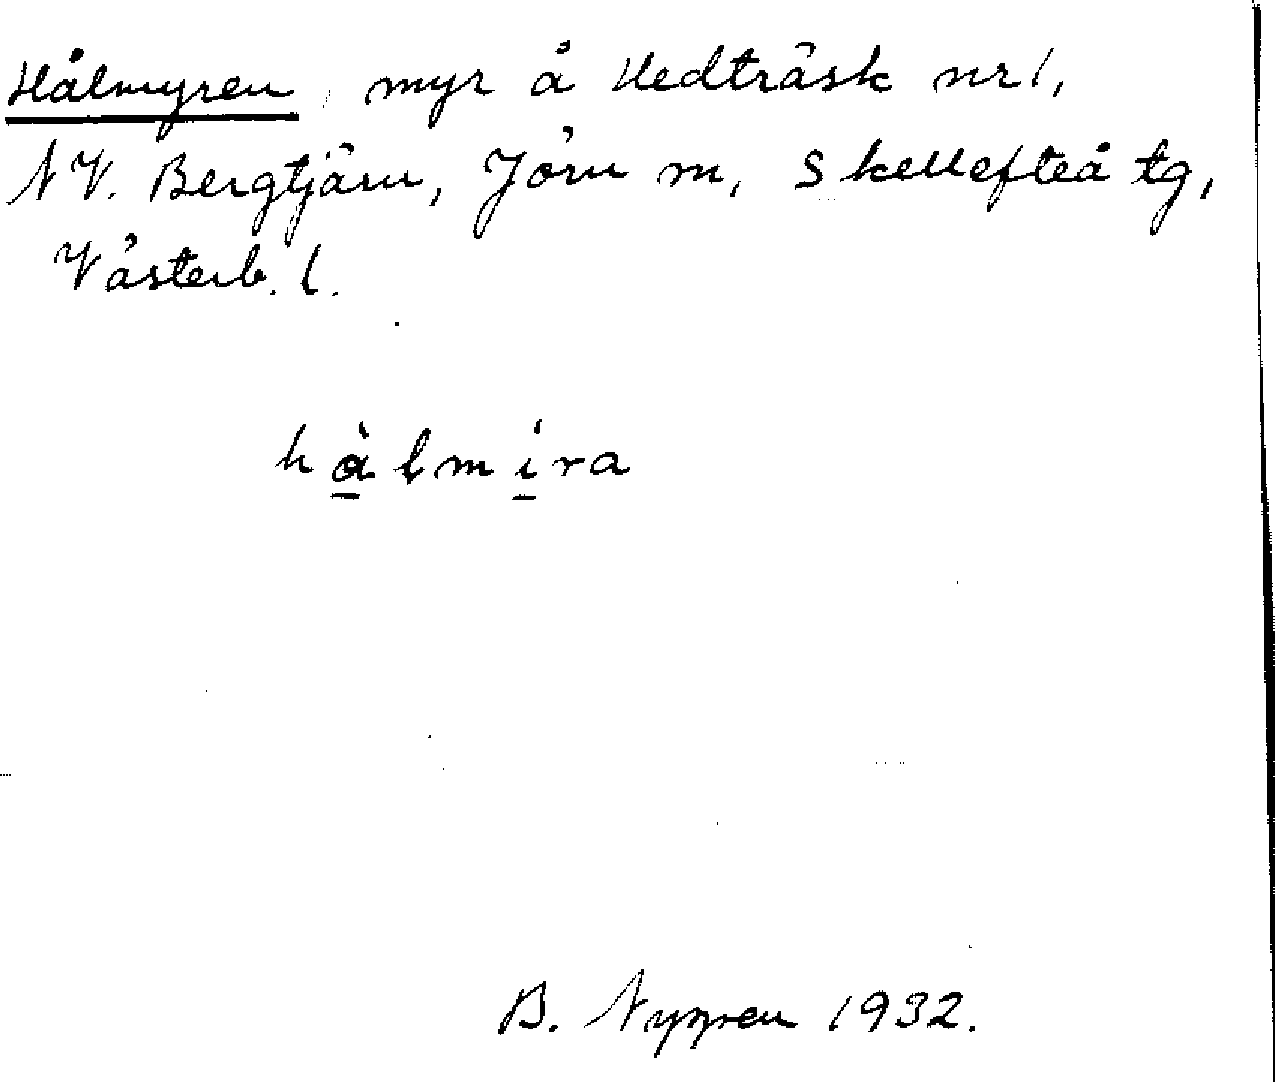 Hålmyren, myr å Hedträsk nr 1,
NV. Bergtjärn, Jörn m, Skellefteå tg,
Västerb. l.
hàlmìra
B. Nygren 1932.